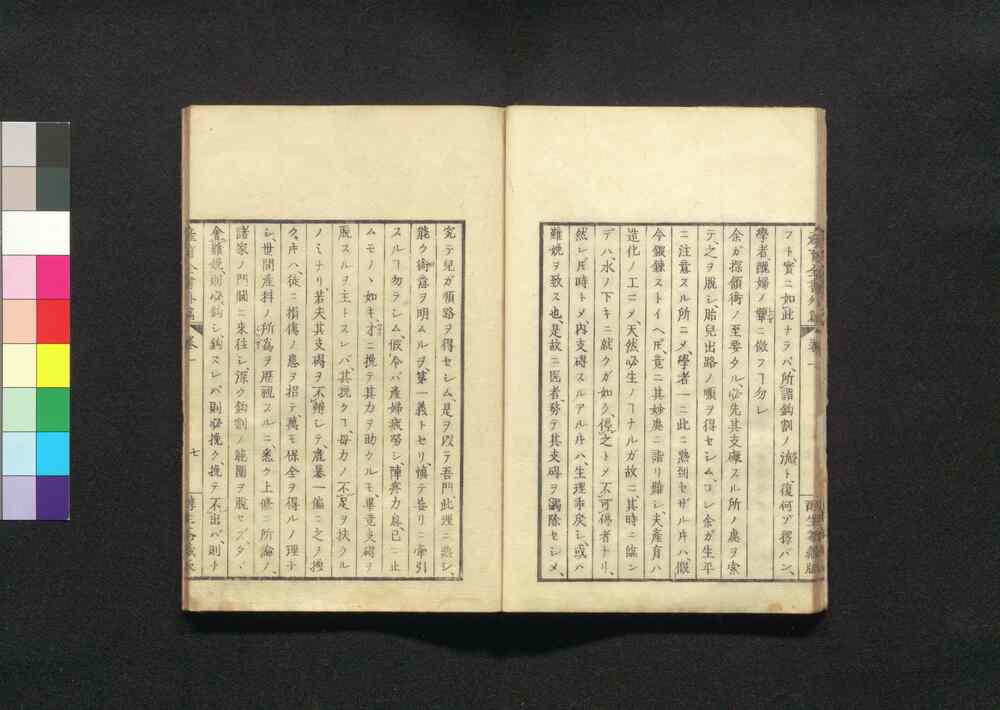 フキ、實ニ如此ナラバ、所謂鈎割ノ術ト、復何ゾ擇バン、
學者、醜婦ノ顰ニ倣フヿ勿レ
余ガ探頷術ノ至要タル、必先其支礙スル所ノ處ヲ索
テ、之ヲ脱シ、胎兒出路ノ順ヲ得セシム、コレ余ガ生平
ニ注意スル所ニメ、學者一ニ此ニ熟到セザル片ハ、假
令鍛錬ストイヘ𪜈、竟ニ其妙處ニ詣リ難シ、夫産育ハ
造化ノ工ニメ、天然必生ノヿナルガ故ニ、其時ニ臨ン
デハ、水ノ下キニ就クガ如ク、得之トメ、不可得者ナリ、
然レ𪜈時トメ、内支碍スルアル片ハ、生理乖戻シ、或ハ
難娩ヲ致ス也、是故ニ医者、務テ其支碍ヲ蠲除セシメ、
完テ兒ガ順路ヲ得セシム、是ヲ以テ吾門、此理ニ熟シ、
能ク術意ヲ明ムルヲ、第一義トセリ、慎テ苔リニ牽引
スルヿ勿ラシム、假令バ産婦疲勞シ、陣疼力衰、已ニ止
ムモノヽ如キ、才ニ挽テ其力ヲ助クルモ、畢竟支碍ヲ
脱スルヲ主トスレバ、其挽クヿ母力ノ不足ヲ扶クル
ノミナリ、若夫其支碍ヲ不辨シテ、麁暴一偏ニ之ヲ挽
ク片ハ、徒ニ損傷ノ患ヲ招テ、萬モ保全ヲ得ルノ理ナ
シ、世間産科ノ所爲ヲ歴視スルニ、悉ク上條ニ所論ノ、
諸家ノ門閫ニ來往シ、深ク鈎割ノ範圍ヲ脱セズ、タヽ
會難娩、則必鈎シ、鈎スレバ則必挽ク、挽テ不出バ、則チ
七